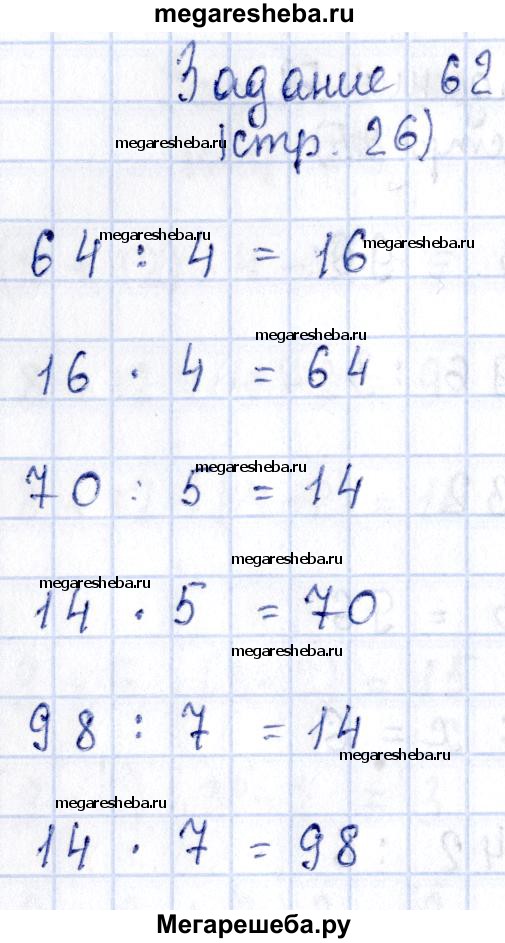 megaresheba.ru
Задание 62
megaresheba.ru
(стр. 26)
megaresheba.ru
megaresheba.ru
64 : 4 = 16
megaresheba.ru
16 · 4 = 64
megaresheba.ru
70 : 5 = 14
megaresheba.ru
megaresheba.ru
14 · 5 = 70
megaresheba.ru
98 : 7 = 14
megaresheba.ru
megaresheba.ru
14 · 7 = 98
Мегарешеба.ру